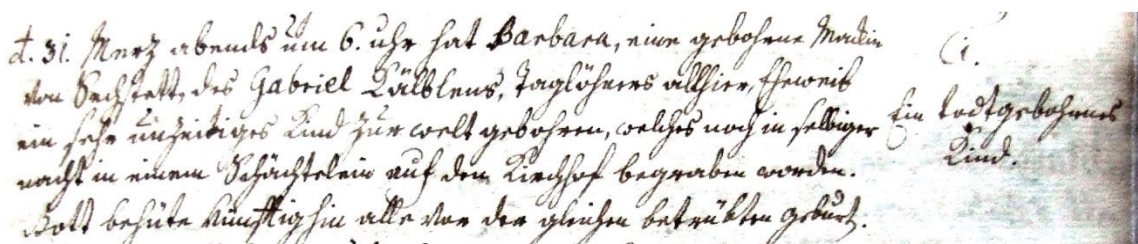 d. 31. Merz abends um 6. uhr hat Barbara, eine gebohrne Mackin
von Sechstett, des Gabriel Kälblens, Taglöhners allhier, Eheweib
ein sehr unzeitiges Kind zur welt gebohren, welches noch in selbiger
nacht in einem Schächtelein auf den Kirchhof begraben worden.
Gott behüte künfftighin alle vor der gleichen betrübten geburt.
1.
Ein todtgebohrnes
Kind.